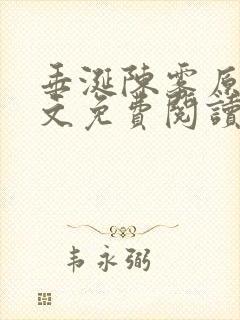 垂涎陳雾原
文免費閱讀
韦永弼